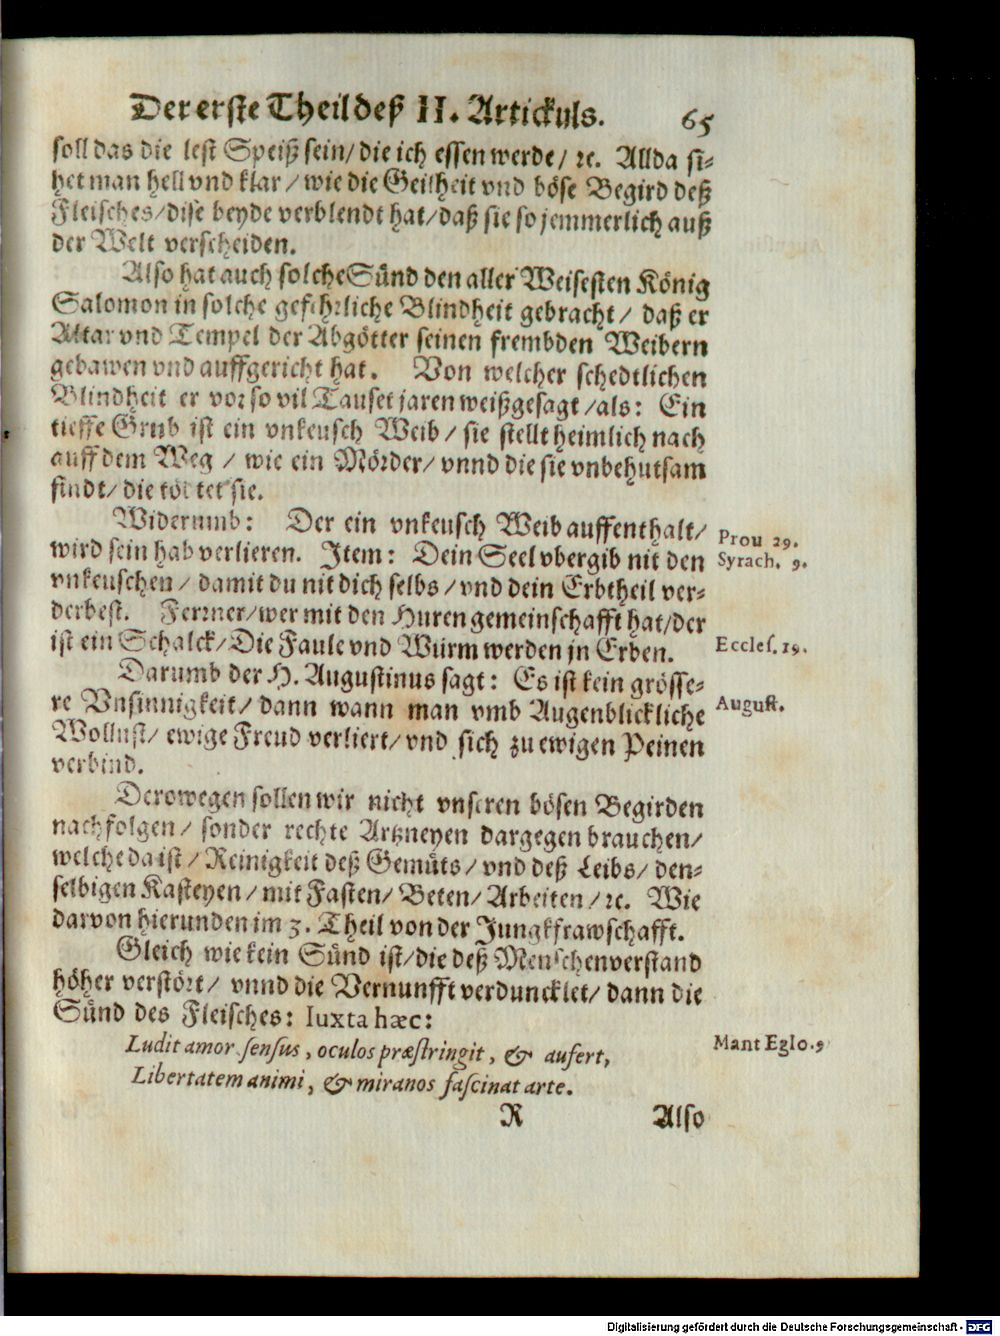 Der erste Theil deß II. Artickuls. 65
soll das die lest Speiß sein/ die ich essen werde/ ꝛc. Allda si-
het man hell vnd klar/ wie die Geilheit vnd böse Begird deß
Fleisches/ dise beyde verblendt hat/ daß sie so jemmerlich auß
der Welt verscheiden.
Also hat auch solche Sünd den aller Weisesten König
Salomon in solche gefehrliche Blindheit gebracht/ daß er
Altar vnd Tempel der Abgötter seinen frembden Weibern
gebawen vnd auffgericht hat. Von welcher schedtlichen
Blindheit er vor so vil Tauset jaren weißgesagt/ als: Ein
tieffe Grub ist ein vnkeusch Weib/ sie stellt heimlich nach
auff dem Weg/ wie ein Mörder/ vnnd die sie vnbehutsam
findt/ die tödtet sie.
Widerumb: Der ein vnkeusch Weib auffenthalt/
Prou 29.
wird sein hab verlieren. Item: Dein Seel vbergib nit den
Syrach. 9.
vnkeuschen/ damit du nit dich selbs/ vnd dein Erbtheil ver-
derbest. Ferrner/ wer mit den Huren gemeinschafft hat/ der
ist ein Schalck/ Die Faule vnd Würm werden jn Erben.
Eccles. 19.
Darumb der H. Augustinus sagt: Es ist kein grösse-
re Vnsinnigkeit/ dann wann man vmb Augenblickliche
August.
Wollust/ ewige Freud verliert/ vnd sich zu ewigen Peinen
verbind.
Derowegen sollen wir nicht vnseren bösen Begirden
nachfolgen/ sonder rechte Artzneyen dargegen brauchen/
welche da ist/ Reinigkeit deß Gemüts/ vnd deß Leibs/ den-
selbigen Kasteyen/ mit Fasten/ Beten/ Arbeiten/ ꝛc. Wie
darvon hierunden im 3. Theil von der Jungkfrawschafft.
Gleich wie kein Sünd ist/ die deß Menschen verstand
höher verstört/ vnnd die Vernunfft verduncklet/ dann die
Sünd des Fleisches: Iuxta hæc:
Ludit amor sensus, oculos præstringit, & aufert,
Mant Eglo. 9
Libertatem animi, & miranos fascinat arte.
R Also
Digitalisierung gefördert durch die Deutsche Forschungsgemeinschaft - DFG